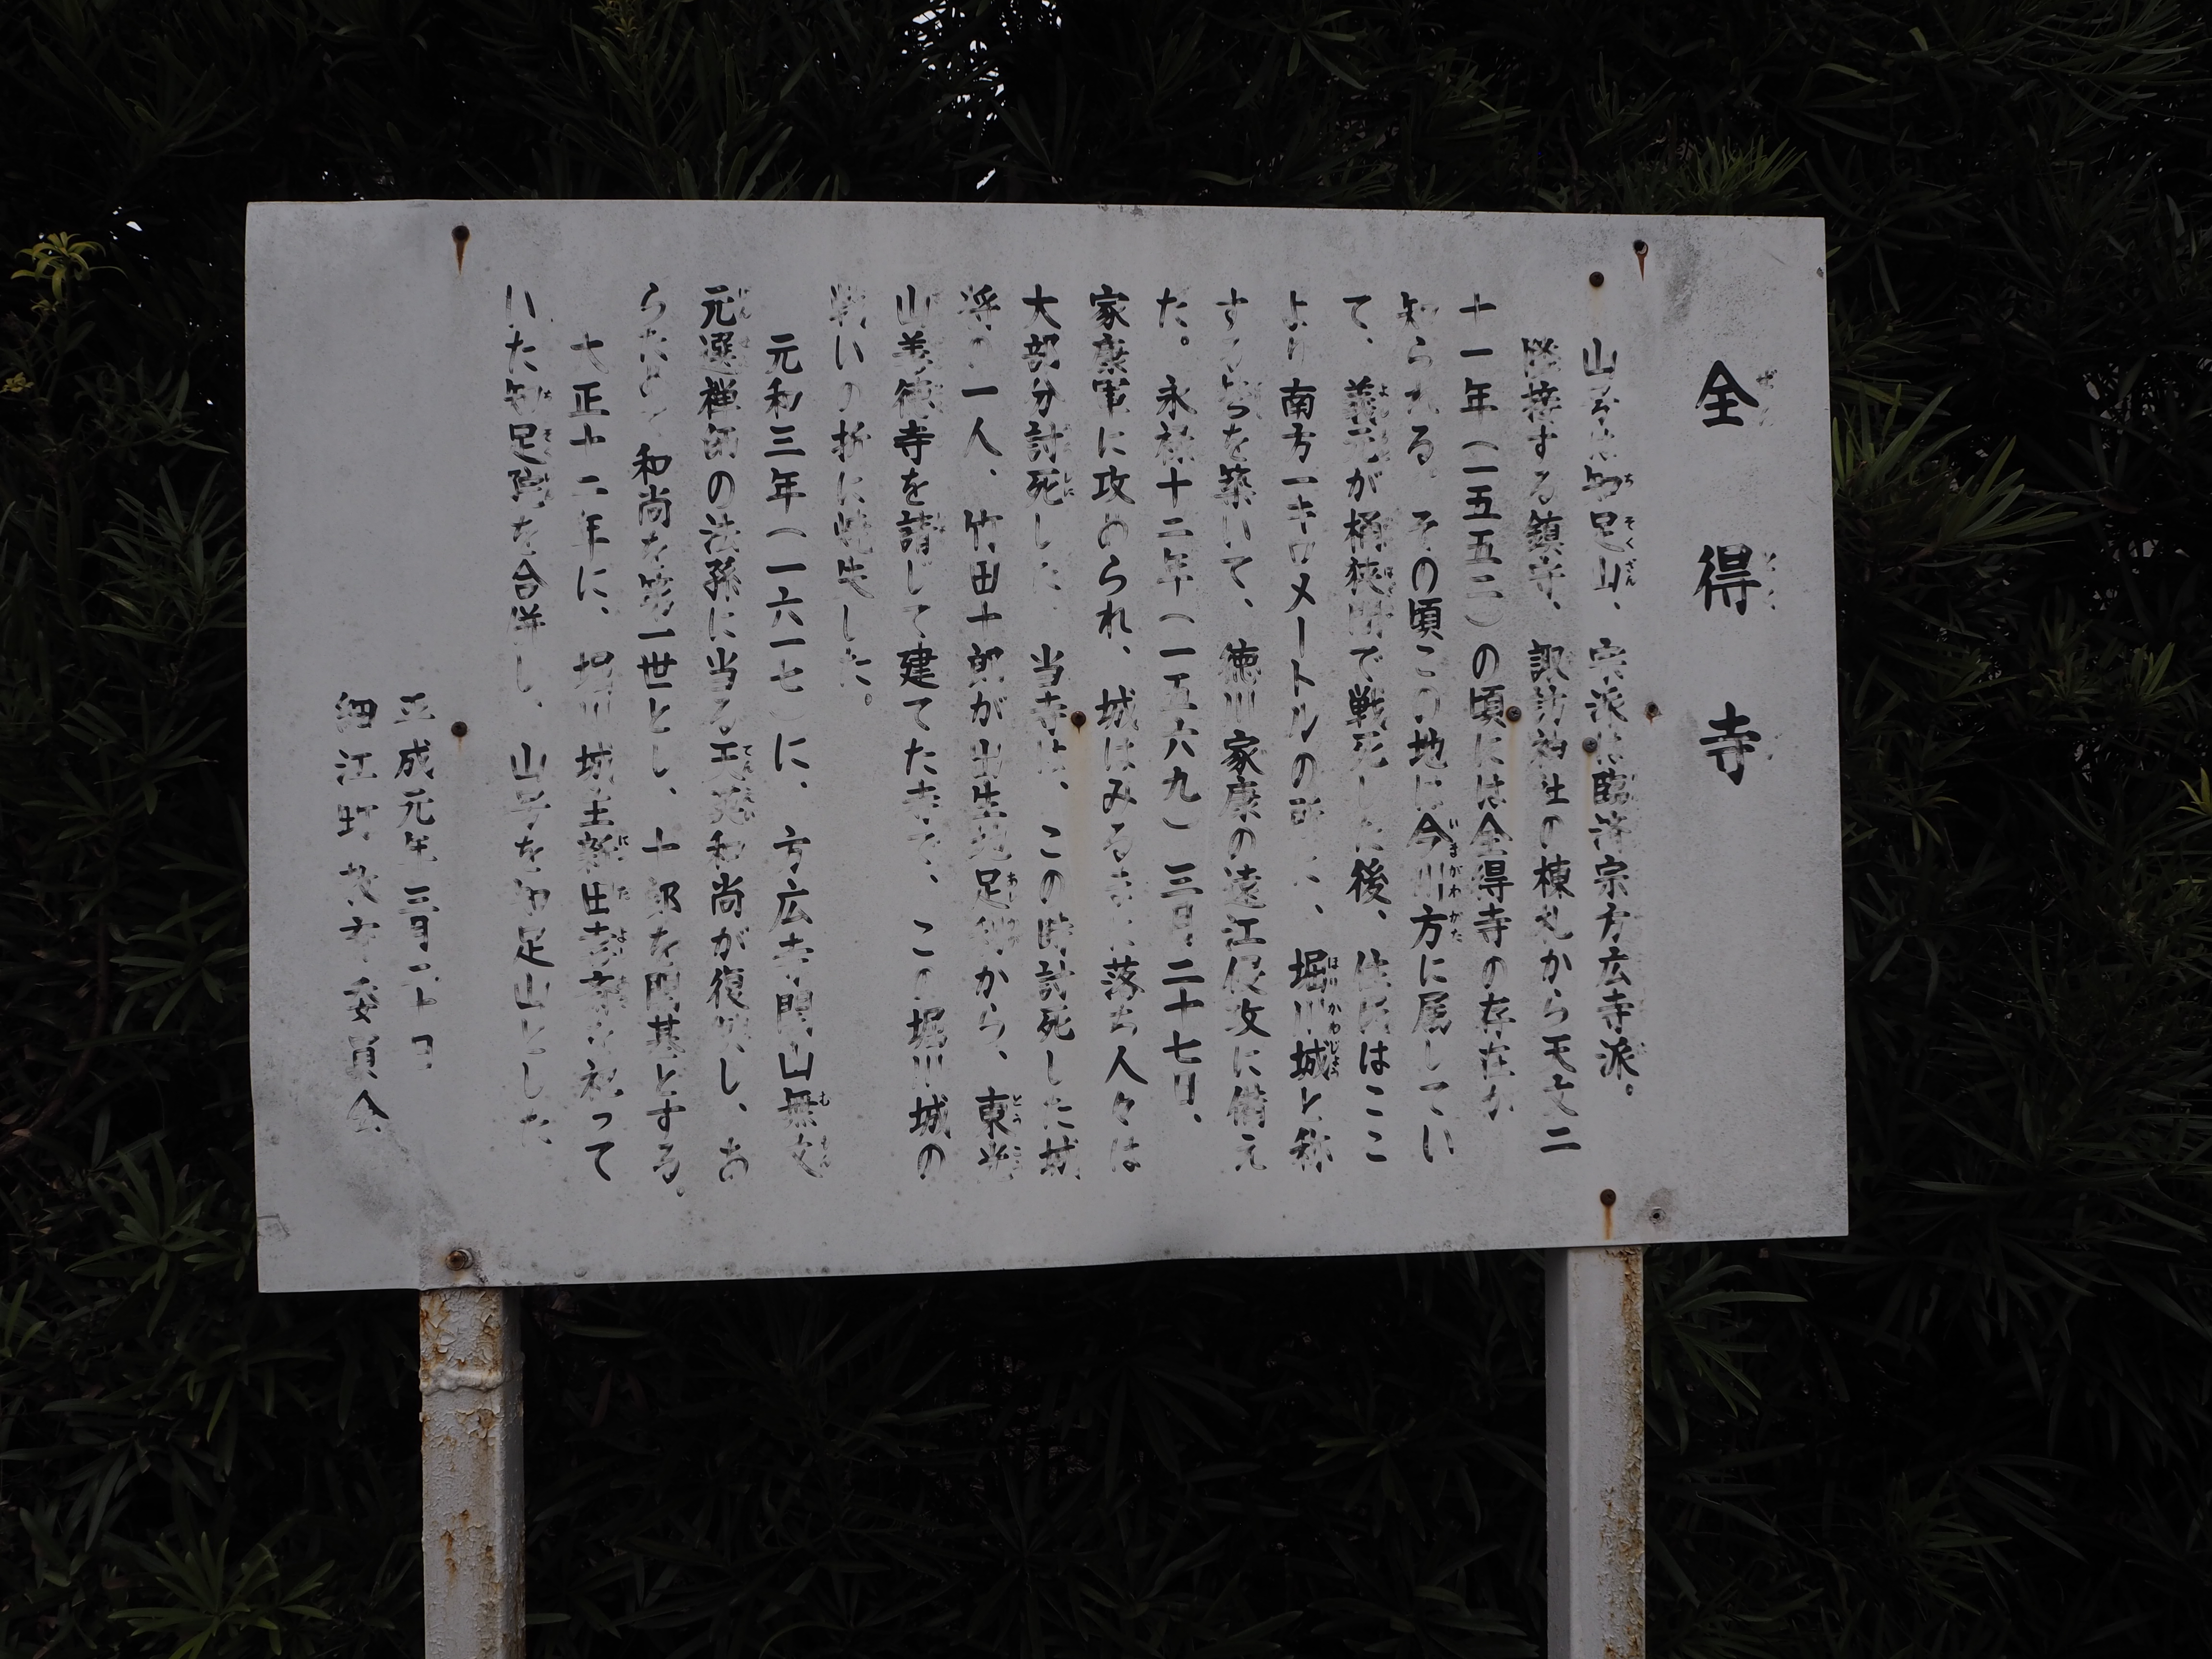 全得寺
山号は知足山、宗派は臨済宗方広寺派。
隣接する鎮守、諏訪神社の棟札から天文二
十一年(一五五二)の頃には全得寺の存在が
知られる。その頃この地は今川方に属してい
て、義元が桶狭間で戦死した後、住民はここ
より南方一キロメートルの所に、堀川城と称
するとりでを築いて、徳川家康の遠江侵攻に備え
た。永禄十二年(一五六九)三月二十七日、
家康軍に攻められ、城はみるまに落ち人々は
大部分討死した。当寺は、この時討死した城
将の一人、竹田十郎が出生地足利から、東光
山善徳寺を請じて建てた寺で、この堀川城の
戦いの折に焼失した。
元和三年(一六一七)に、方広寺開山無文
元選禅師の法孫に当る天菀和尚が復興し、あ
らためて和尚を第一世とし、十郎を開基とする。
大正十二年に、堀川城主新田喜斎を祀って
いた知足院を合併し、山号を知足山とした。
平成元年三月二十日
細江町教育委員会